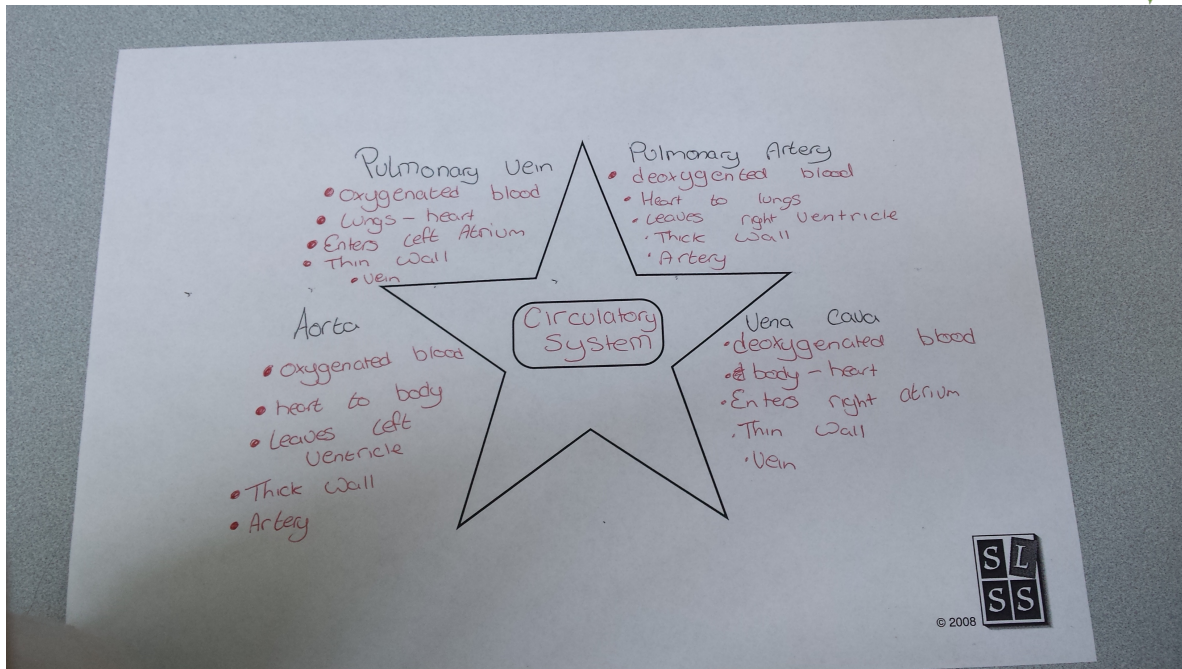 Pulmonary Vein
• Oxygenated blood
• Lungs - heart
• Enters Left Atrium
• Thin Wall
• Vein
Pulmonary Artery
• deoxygented blood
• Heart to lungs
• Leaves right Ventricle
• Thick Wall
• Artery
Circulatory
System
Aorta
• Oxygenated blood
• heart to body
• Leaves Left
Ventricle
• Thick Wall
• Artery
Vena Cava
• deoxygenated blood
• body - heart
• Enters right atrium
• Thin Wall
• Vein
S L
S S
© 2008